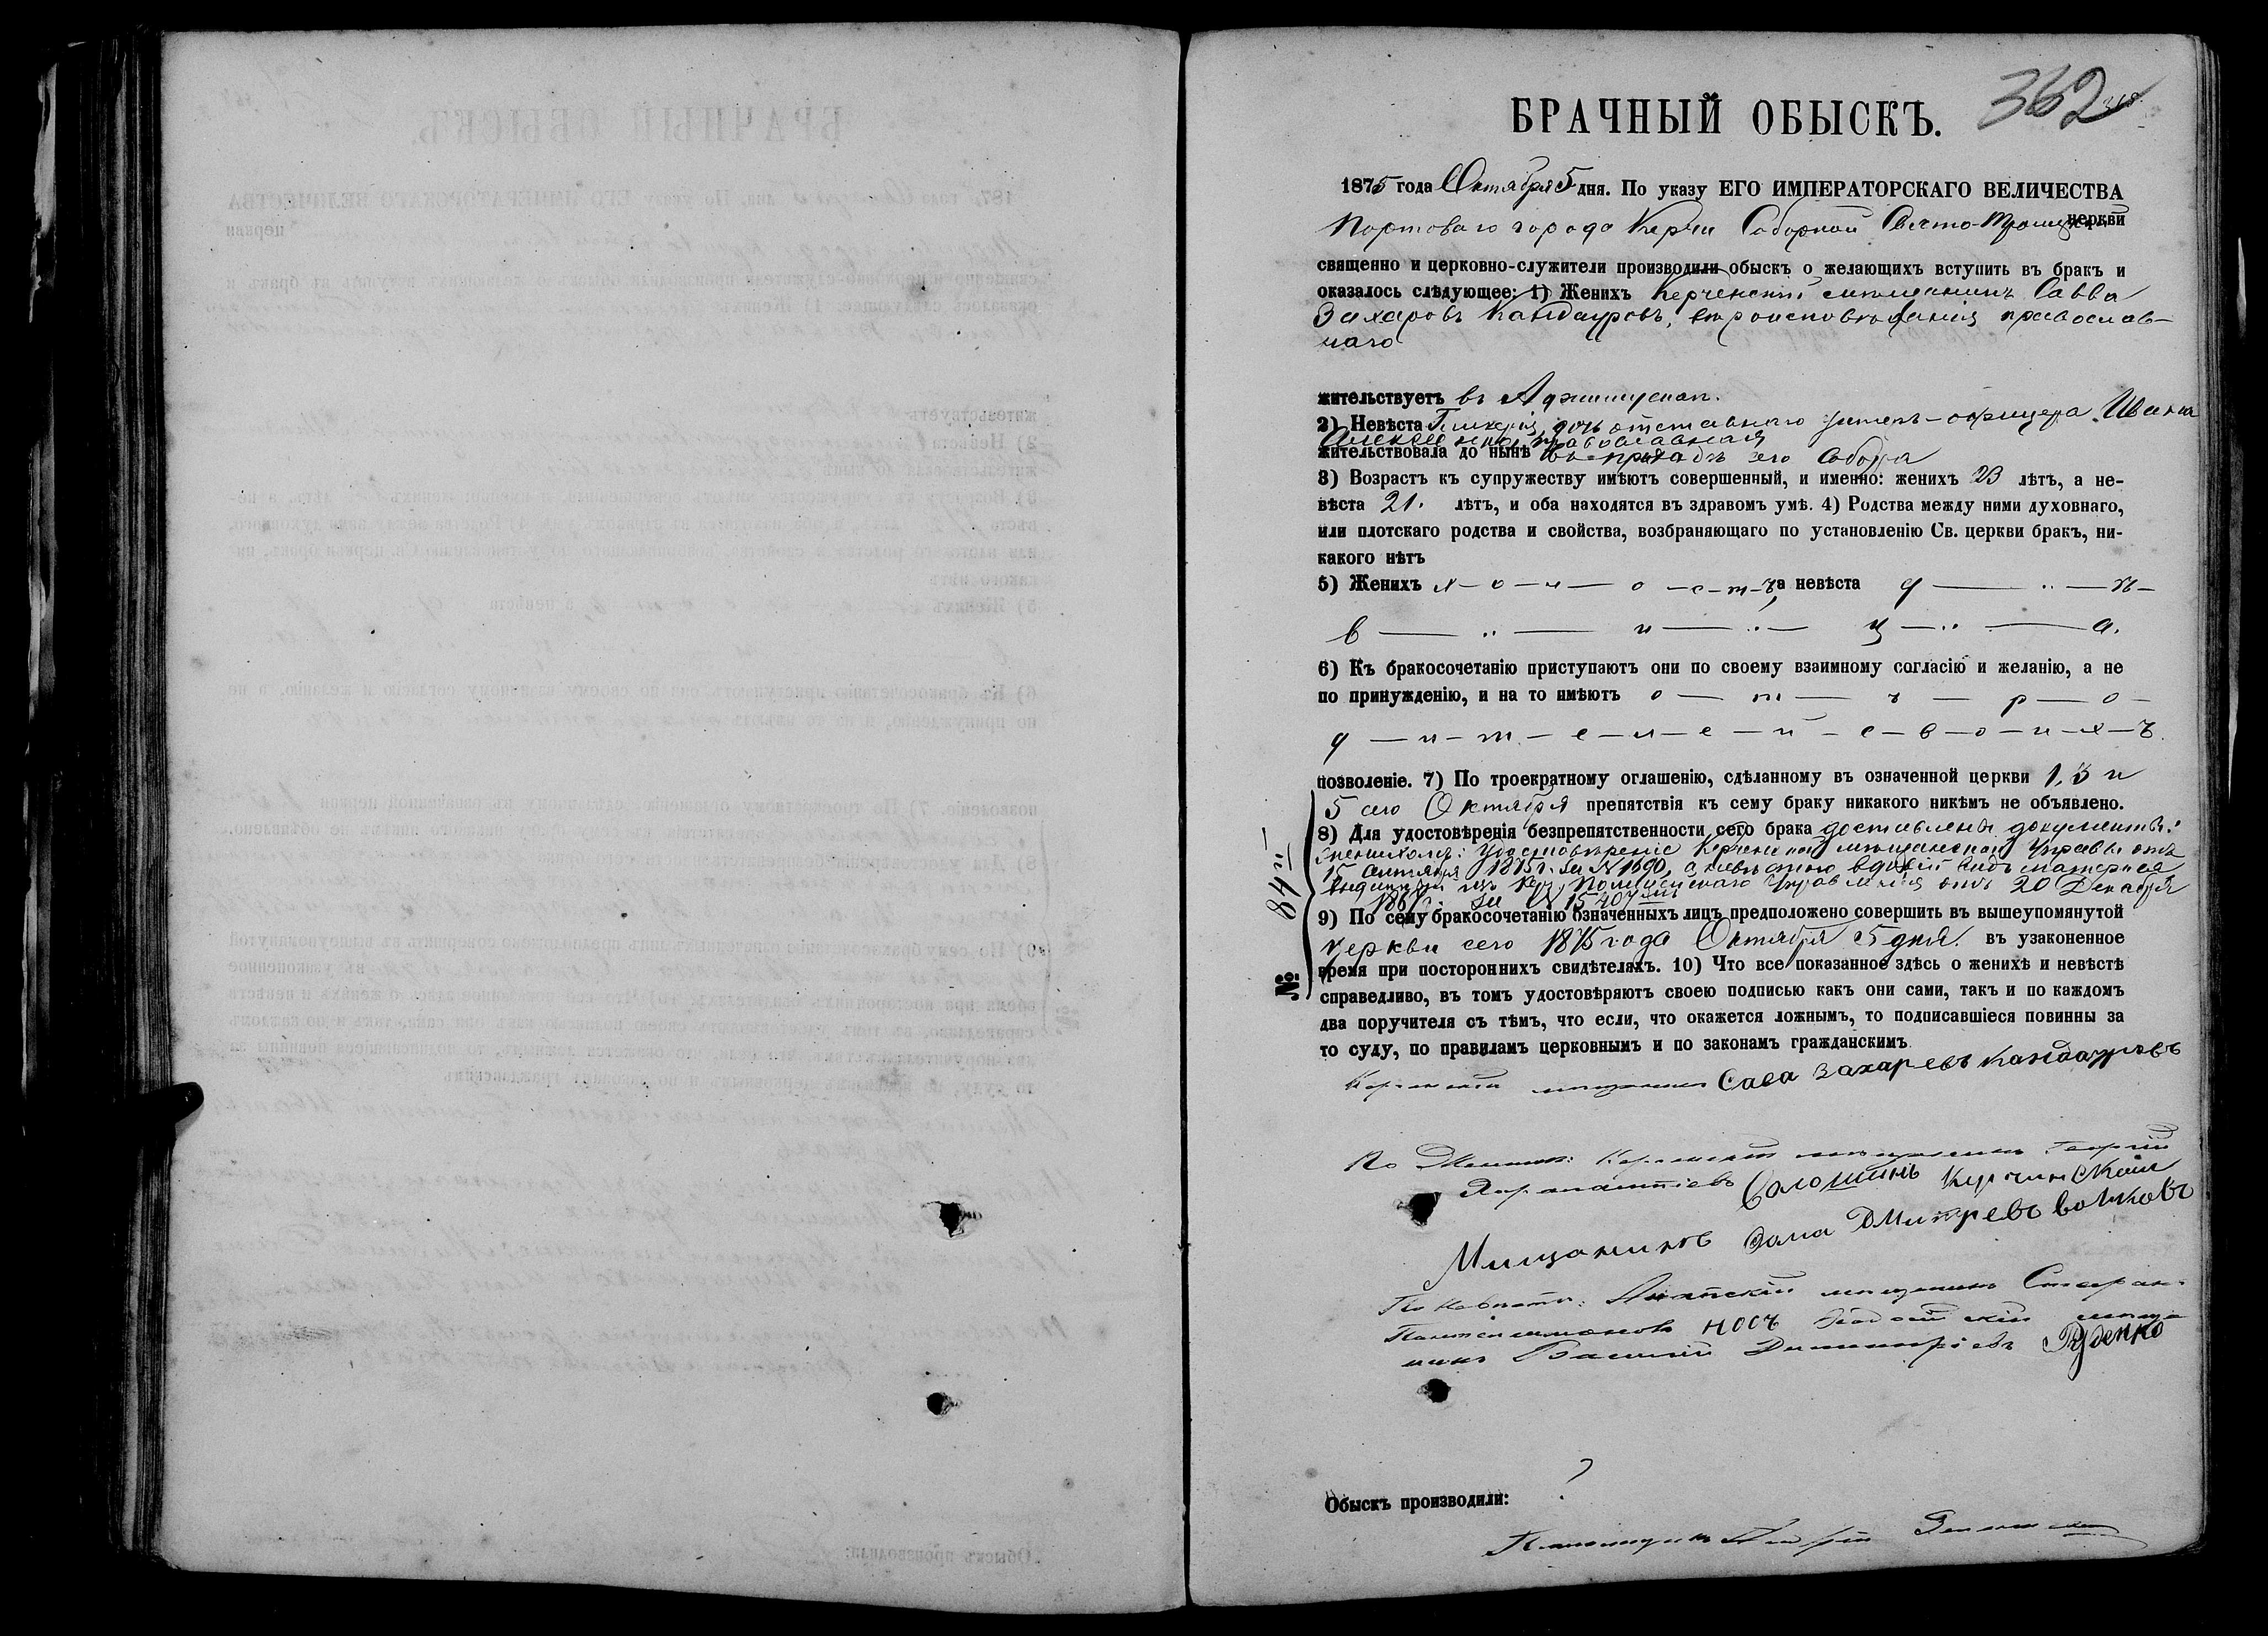 БРАЧНЫЙ ОБЫСКЪ.
362
1875 года Октября 5 дня. По указу ЕГО ИМПЕРАТОРСКАГО ВЕЛИЧЕСТВА
Портоваго города Керчи Соборной Свято-Троицк церкви
священно и церковно-служители производили обыскъ о желающихъ вступить въ бракъ и
оказалось слѣдующее: 1) Женихъ Керченскій мѣщанинъ Савва
Захаровъ Кандауровъ, вѣроисповѣданія православ-
наго
жительствуетъ въ Аджимушкаѣ.
2) Невѣста Гликерія, дочь отставнаго унтеръ-офицера Ивана
Алексѣенко, православная
жительствовала до нынѣ въ приходѣ сего Собора
3) Возрастъ къ супружеству имѣютъ совершенный, и именно: женихъ 23 лѣтъ, а не-
вѣста 21. лѣтъ, и оба находятся въ здравомъ умѣ. 4) Родства между ними духовнаго,
или плотскаго родства и свойства, возбраняющаго по установленію Св. церкви бракъ, ни-
какого нѣтъ
5) Женихъ х—о—л—о—с—т—ъ, а невѣста д— " —ѣ—
в— " —и— " —ц— " —а.
6) Къ бракосочетанію приступаютъ они по своему взаимному согласію и желанію, а не
по принужденію, и на то имѣютъ о—т—ъ—р—о—
д—и—т—е—л—е—й—с—в—о—и—х—ъ.
позволеніе. 7) По троекратному оглашенію, сдѣланному въ означенной церкви 1, 3 и
5 сего Октября препятствія къ сему браку никакого никѣмъ не объявлено.
8) Для удостовѣренія безпрепятственности сего брака доставлены документы:
Женихомъ: Удостовѣреніе Керченской мѣщанской Управы отъ
15 1875 г. за № 1690, а невѣстою вдовій видъ матери ея
выданный изъ Кер. Полицейскаго Управленія отъ 20 Декабря
186 г. за № 15407
№ 84й
9) По сему бракосочетанію означенныхъ лицъ предположено совершить въ вышеупомянутой
церкви сего 1875 года Октября 5 дня. въ узаконенное
время при постороннихъ свидѣтеляхъ. 10) Что все показанное здѣсь о женихѣ и невѣстѣ
справедливо, въ томъ удостовѣряютъ своею подписью какъ они сами, такъ и по каждомъ
два поручителя съ тѣмъ, что если, что окажется ложнымъ, то подписавшіеся повинны за
то суду, по правиламъ церковнымъ и по законамъ гражданскимъ
Керченскій мѣщанинъ Сава Захаревъ Кандауровъ
По Женихѣ: Керченскій мѣщанинъ Георгій
Солошинъ Курчинскай
Мищанинов Дмитревъ Волковъ
По невѣстѣ: мѣщанинъ
Носъ
Василій Димитріевъ Руденко
Обыскъ производили: